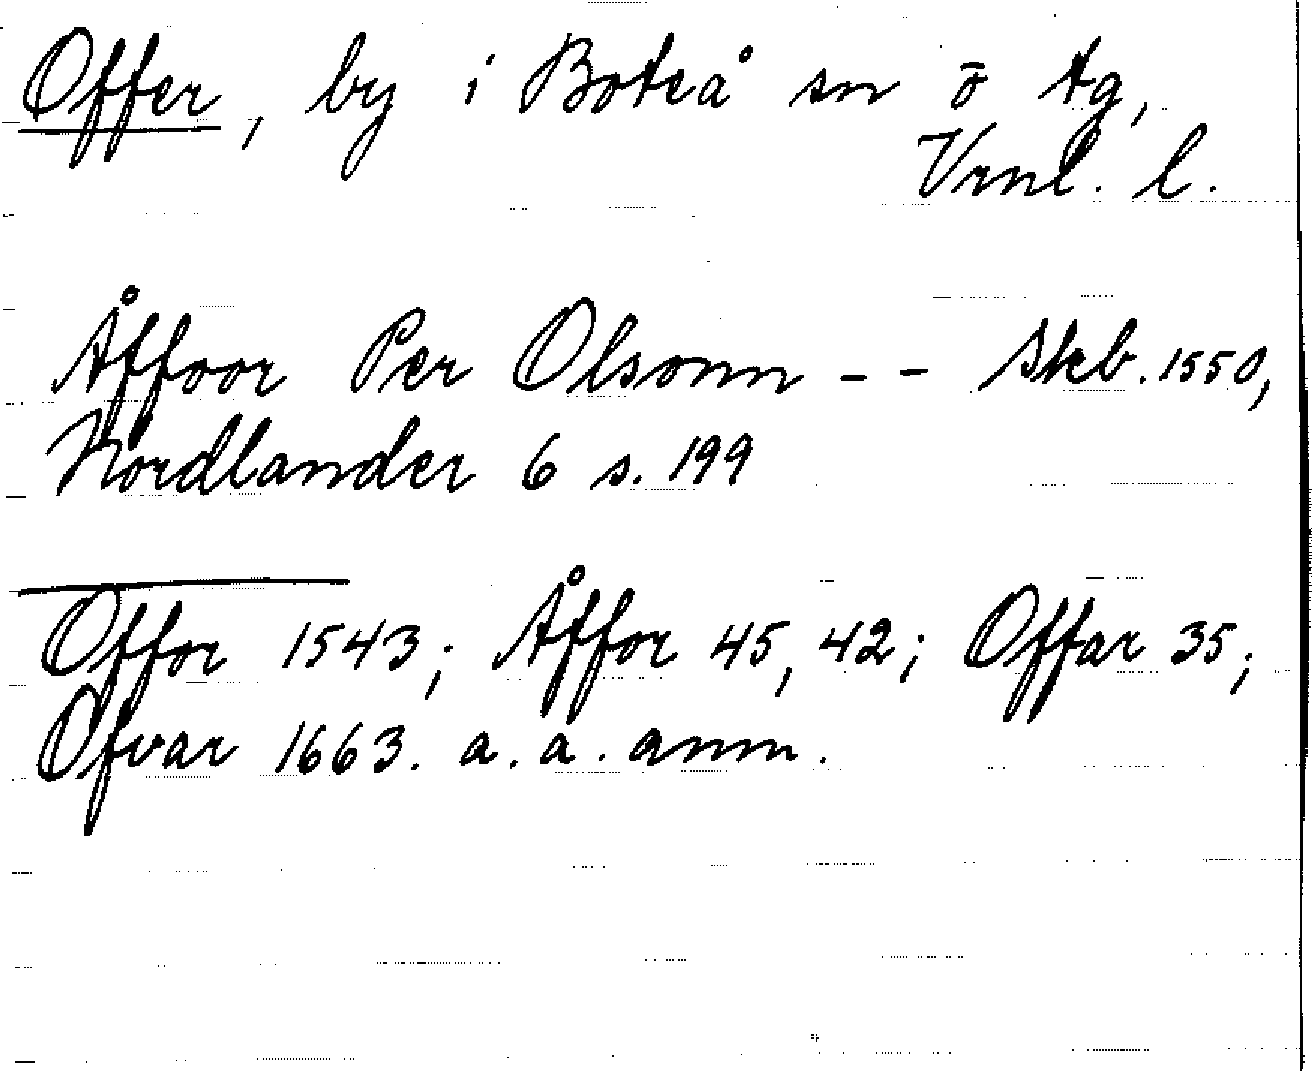 Offer, by i Boteå sn ö tg,
Vrnl. l.
Åffoor Per Olsonn - - Skb. 1550,
Nordlander 6 s. 199
Offor 1543; Åffor 45, 42; Offar 35;
Ofvar 1663. a. a. anm.